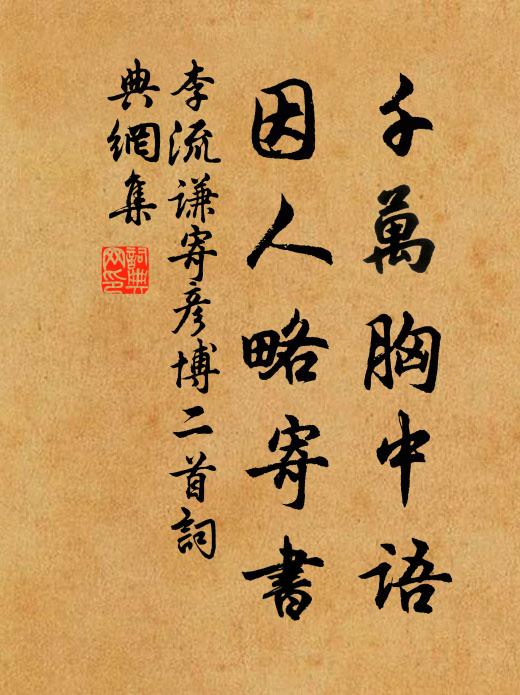 千萬胸中語
因人略寄書
李流謙寄彥博二首詞
典網集
詞典網印